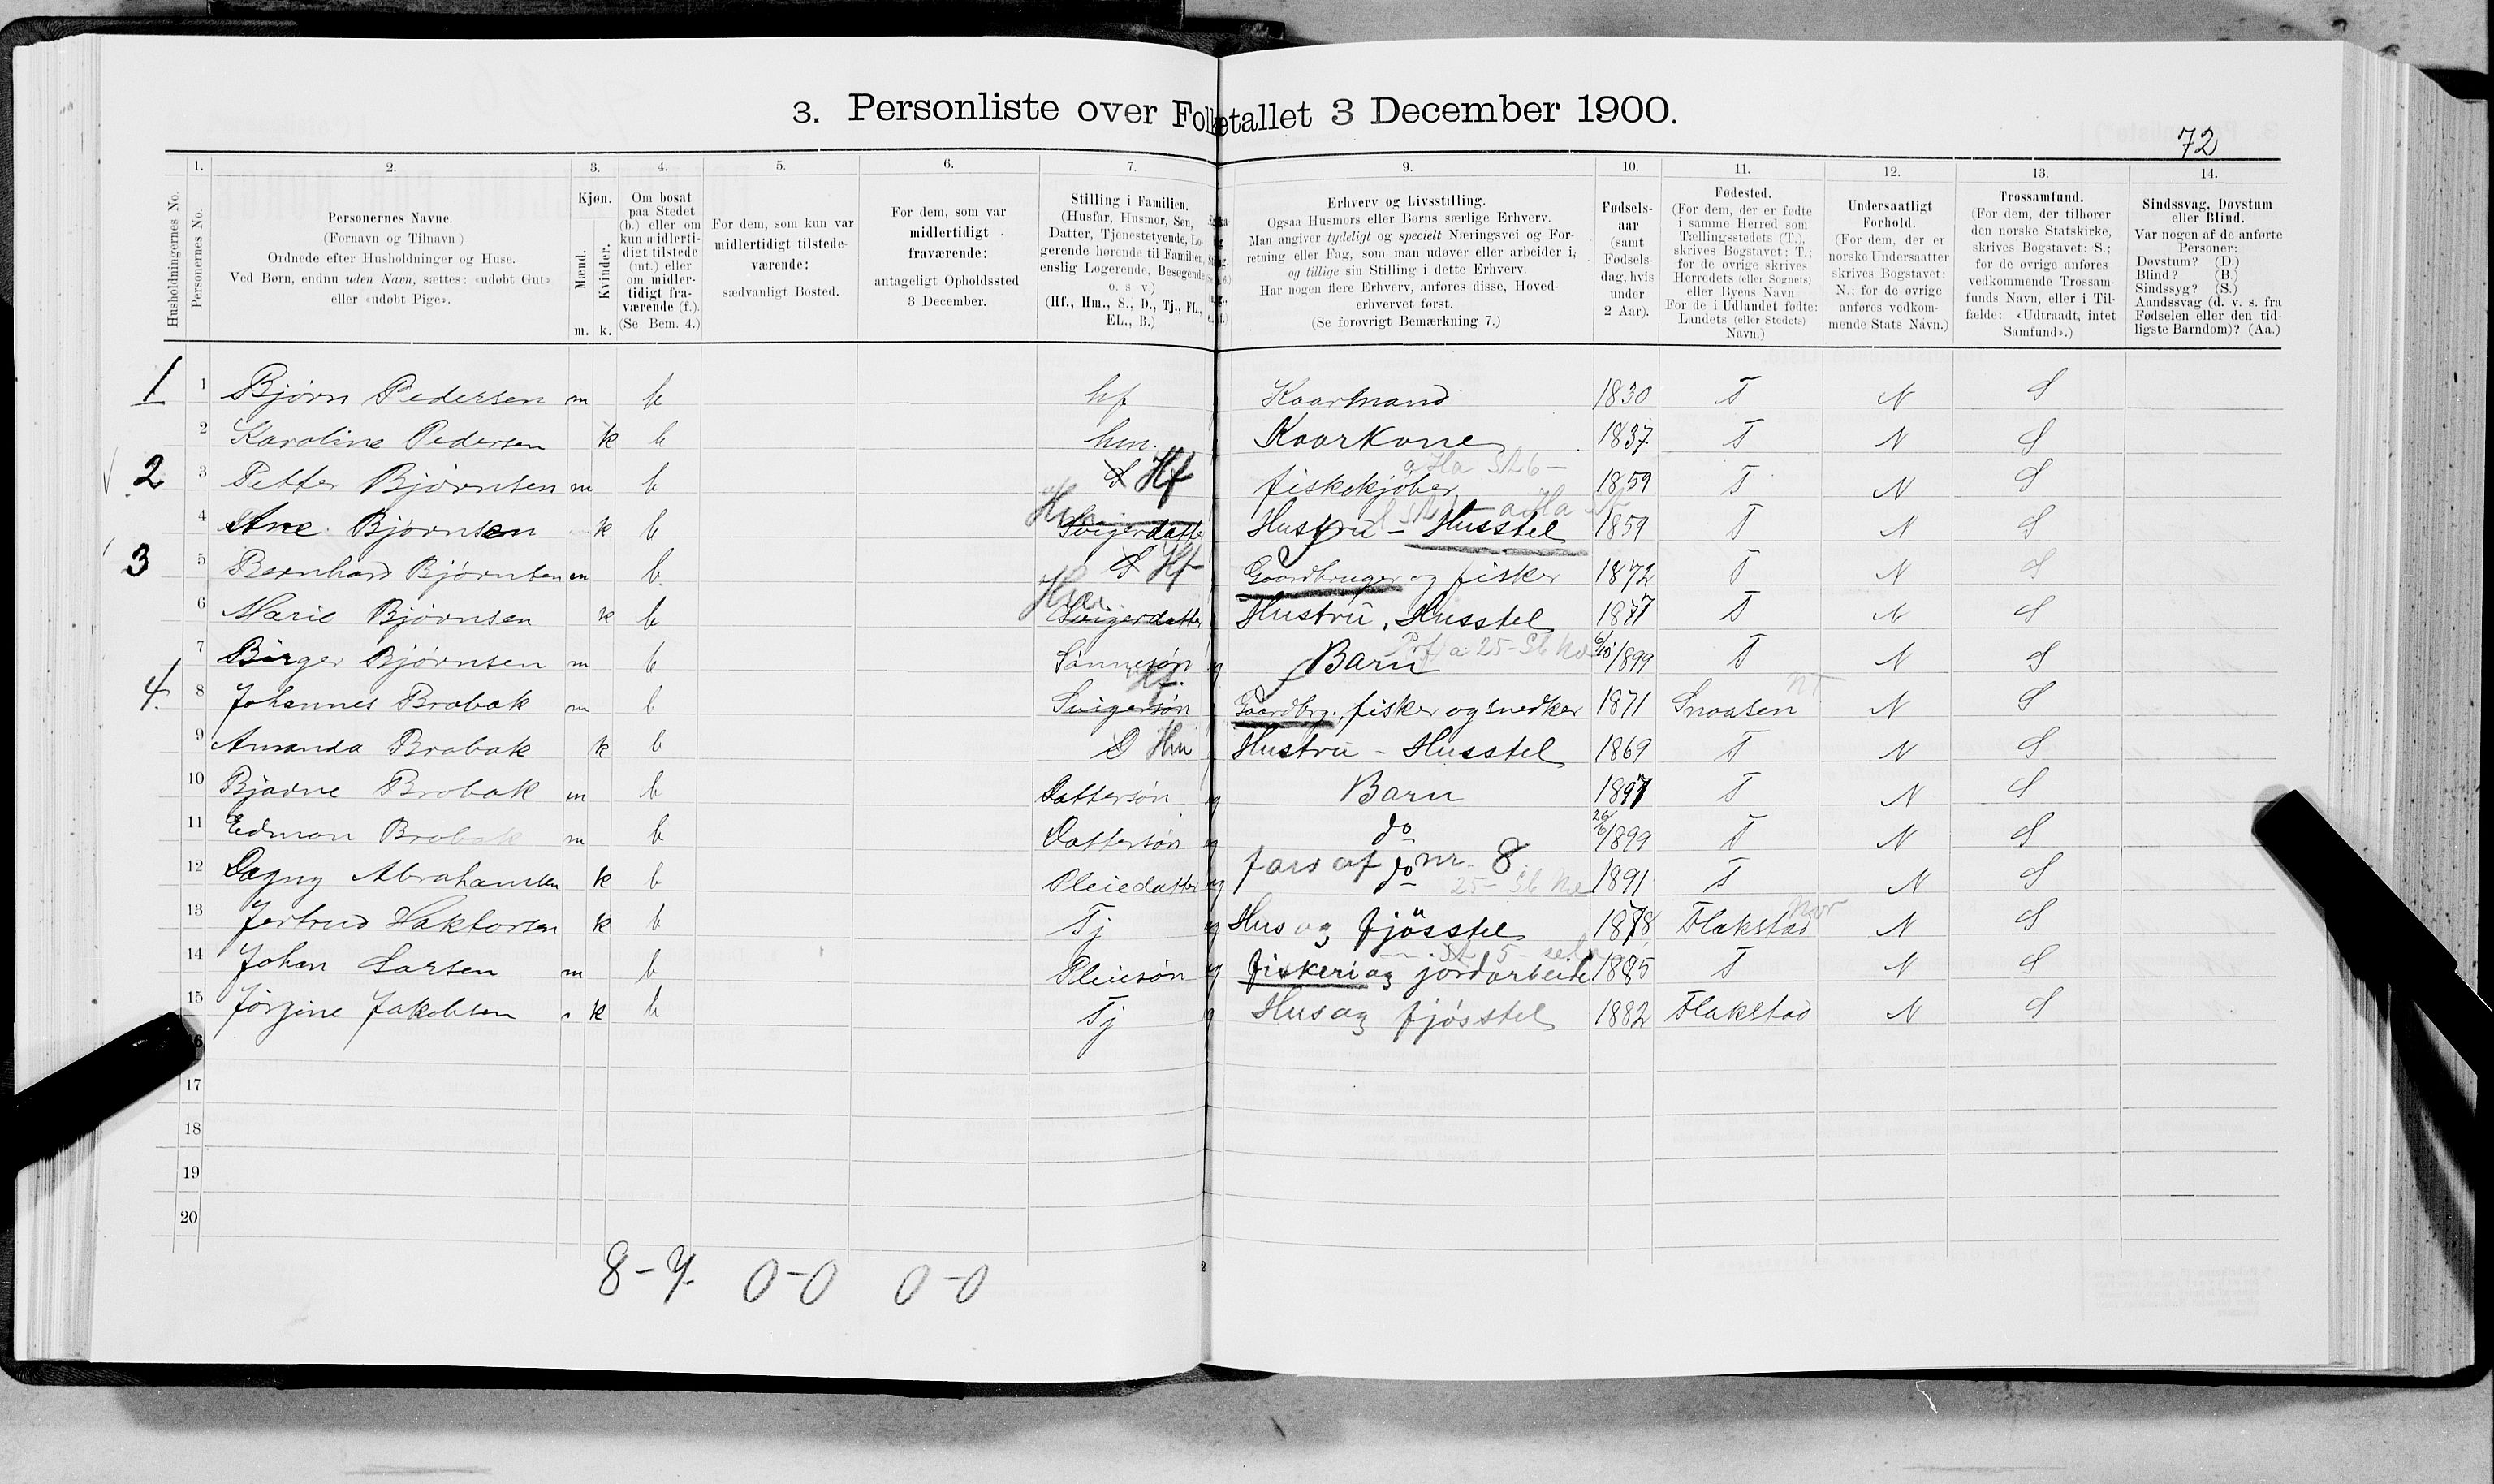 3. Personliste over Folketallet 3 December 1900.
72
1. 2. 3. 4. 5. 6. 7. 9. 10. 11. 12. 13. 14.
Husholdningernes No.
Personernes No.
Personernes Navne.
(Fornavn og Tilnavn)
Ordnede efter Husholdninger og Huse.
Ved Børn, endnu uden Navn, sættes: «udøbt Gut»
eller «udøbt Pige».
Kjøn.
Mænd.
Kvinder.
m. k.
Om bosat
paa Stedet
(b.) eller om
kun midlerti-
digt tilstede
(mt.) eller
om midler-
tidigt fra-
værende (f.).
(Se Bem. 4.)
For dem, som kun var
midlertidigt tilstede-
værende:
sædvanligt Bosted.
For dem, som var
midlertidigt
fraværende:
antageligt Opholdssted
3 December.
Stilling i Familien.
(Husfar, Husmor, Søn,
Datter, Tjenestetyende, Lo-
gerende hørende til Familien,
enslig Logerende, Besøgende
o. s v.)
(Hf., Hm., S., D., Tj., FL.,
EL., B.)
Erhverv og Livsstilling.
Ogsaa Husmors eller Børns særlige Erhverv.
Man angiver tydeligt og specielt Næringsvei og For-
retning eller Fag, som man udøver eller arbeider i,
og tillige sin Stilling i dette Erhverv.
Har nogen flere Erhverv, anføres disse, Hoved-
erhvervet først.
(Se forøvrigt Bemærkning 7.)
Fødsels-
aar
(samt
Fødsels-
dag, hvis
under
2 Aar).
Fødested.
(For dem, der er fødte
i samme Herred som
Tællingsstedets (T.),
skrives Bogstavet: T.;
for de øvrige skrives
Herredets (eller Sognets)
eller Byens Navn
For de i Udlandet fødte:
Landets (eller Stedets)
Navn.)
Undersaatligt
Forhold.
(For dem, der er
norske Undersaatter
skrives Bogstavet:
N.; for de øvrige
anføres vedkom-
mende Stats Navn.)
Trossamfund.
(For dem, der tilhører
den norske Statskirke,
skrives Bogstavet: S.;
for de øvrige anføres
vedkommende Trossam-
funds Navn, eller i Til-
fælde: «Udtraadt, intet
Samfund».)
Sindssvag, Døvstum
eller Blind.
Var nogen af de anførte
Personer:
Døvstum? (D.)
Blind? (B.)
Sindssyg? (S.)
Aandssvag (d. v. s. fra
Fødselen eller den tid-
ligste Barndom)? (Aa.)
1 1 Bjørn Pedersen m b hf Kaarmand 1830 T N S
2 Karoline Pedersen k b hm. Kaarkone 1837 T N S
2 3 Petter Bjørnsen m b S Hf fiskekjøber 1859 T N S
4 Ane Bjørnsen k b Svigerdatter Hm Hustru - Husstel 1859 T N S
3 5 Bernhard Bjørnsen m b S Hf Gaardbruger og fisker 1872 T N S
6 Marie Bjørnsen k b Svigerdatter Hm Hustru, Husstel 1877 T N S
7 Birger Bjørnsen m b Sønnesøn ug Barn 6/10 1899 T N S
4. 8 Johannes Brabak m b Svigersøn Hf. Gaardbrg. fisker og snedker 1871 Snaasen NT N S
9 Amanda Brabak k b D Hm Hustru - Husstel 1869 T N S
10 Bjarne Brobak m b Dattersøn ug Barn 1897 T N S
11 Edmon Brobak m b Dattersøn ug do 26/6 1899 T N S
12 Dagny Abrahamsen k b Pleiedatter ug do 1891 T N S
fars af nr. 8
13 Jertrud Haktorsen k b Tj ug Hus og fjøsstel 1878 Flakstad Nor N S
14 Johan Larsen m b Pleiesøn ug fiskeri og jordarbeide 1885 T N S
15 Jørgine Jakobsen k b Tj Hus og fjøsstel 1882 Flakstad N S
17
18
19
20
8-7. 0-0 0-0
2